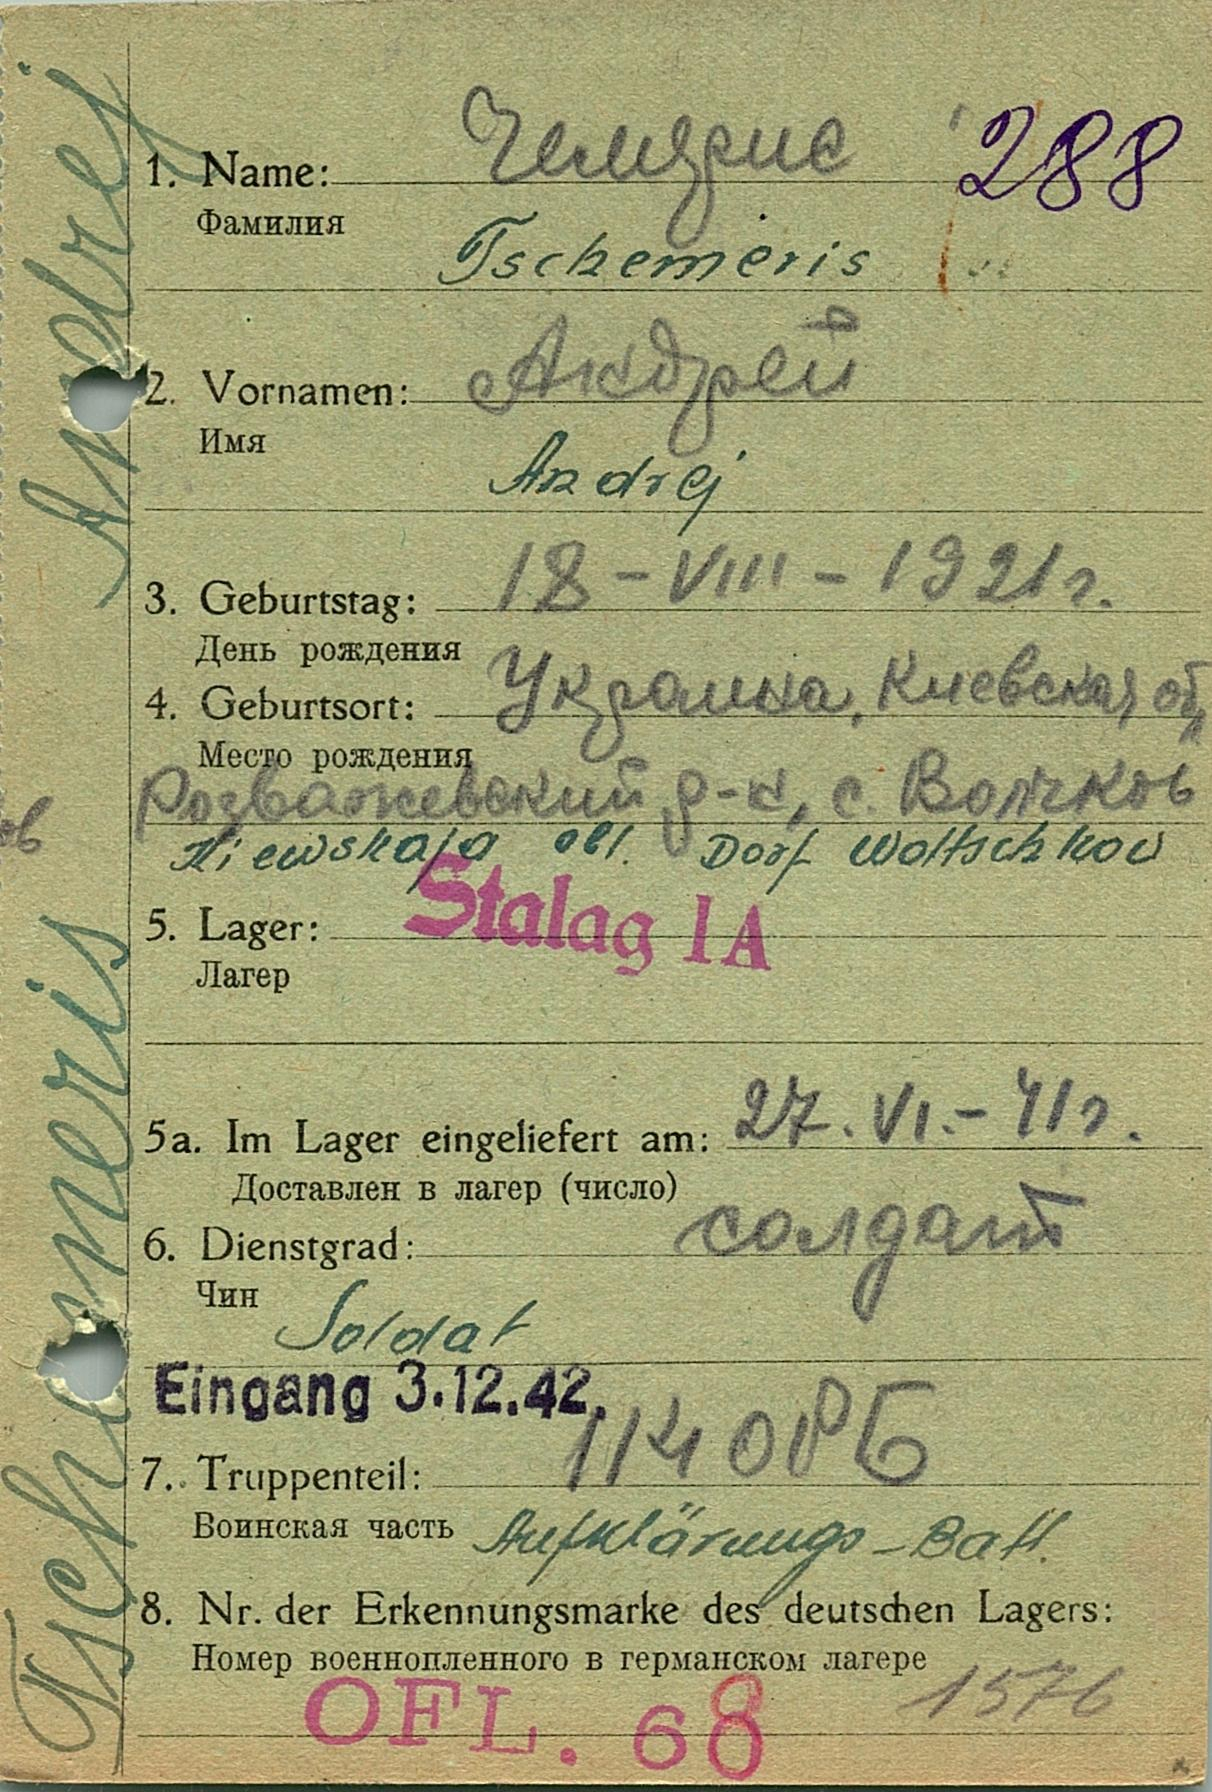 Tschemeris Andrej
Чемерис 288
1. Name:
Фамилия
Tschemeris
Андрей
2. Vornamen:
Имя
Andrej
18-VIII-1921г.
3. Geburtstag:
День рождения
Украина, Киевская об,
4. Geburtsort:
Место рождения
ов Розважевский р-н, с. Волчков
Kiewskaja obl. Dorf Woltschkow
5. Lager: Stalag IA
Лагер
5a. Im Lager eingeliefert am: 27.VI.-41г.
Доставлен в лагер (число)
солдат
6. Dienstgrad:
Чин
Soldat
Eingang 3.12.42.
114 ОРБ
7. Truppenteil:
Воинская часть Aufklärungs-Batl.
8. Nr. der Erkennungsmarke des deutschen Lagers:
Номер военнопленного в германском лагере
1576
OFL. 68